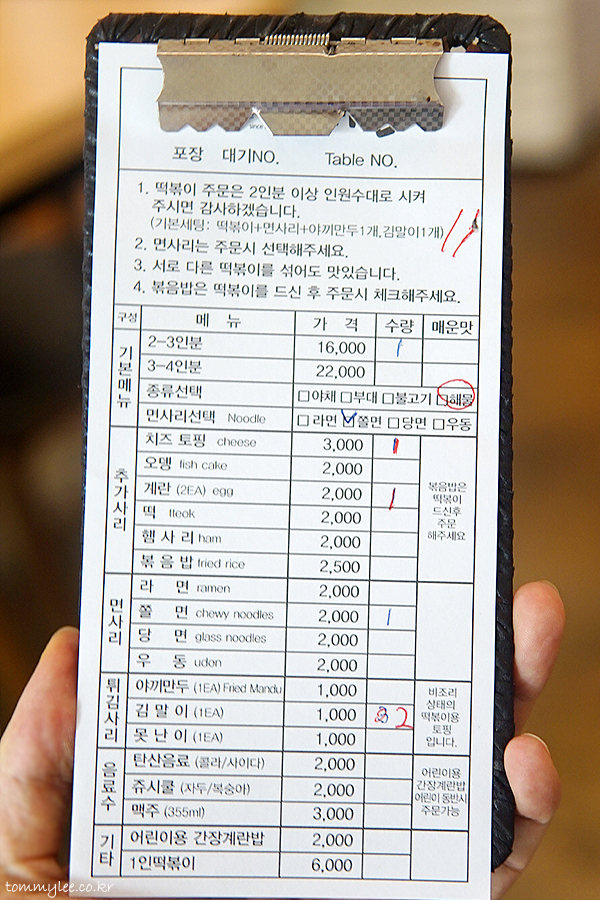 since
포장 대기NO. Table NO.
1. 떡볶이 주문은 2인분 이상 인원수대로 시켜
주시면 감사하겠습니다.
(기본세팅: 떡볶이+면사리+야끼만두1개,김말이1개)
2. 면사리는 주문시 선택해주세요.
3. 서로 다른 떡볶이를 섞어도 맛있습니다.
4. 볶음밥은 떡볶이를 드신 후 주문시 체크해주세요.
구성 메 뉴 가 격 수량 매운맛
기본메뉴
2-3인분 16,000 1
3-4인분 22,000
종류선택 □야채 □부대 □불고기 □해물
면사리선택 Noodle □라면 □쫄면 □당면 □우동
추가사리
치즈 토핑 cheese 3,000 1
오뎅 fish cake 2,000
계란 (2EA) egg 2,000 1
떡 tteok 2,000
햄 사 리 ham 2,000
볶 음 밥 fried rice 2,500
볶음밥은
떡볶이
드신후
주문
해주세요
면사리
라 면 ramen 2,000
쫄 면 chewy noodles 2,000 1
당 면 glass noodles 2,000
우 동 udon 2,000
튀김사리
야끼만두 (1EA) Fried Mandu 1,000
김 말 이 (1EA) 1,000 2
못 난 이 (1EA) 1,000
비조리
상태의
떡볶이용
토핑
입니다.
음료수
탄산음료 (콜라/사이다) 2,000
쥬시쿨 (자두/복숭아) 2,000
맥주 (355ml) 3,000
어린이용
간장계란밥
어린이 동반시
주문가능
기타
어린이용 간장계란밥 2,000
1인떡볶이 6,000
tommylee.co.kr